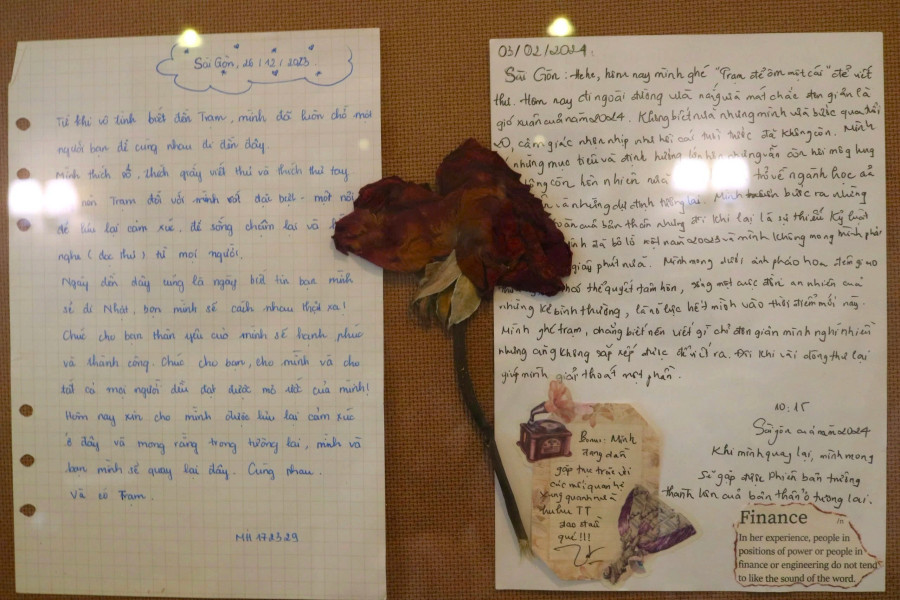 Sài Gòn, 26/12/2023
Từ khi vô tình biết đến Trạm, mình đã luôn chờ một
người bạn để cùng nhau đi đến đây.
Mình thích sổ, thích giấy viết thư và thích thư tay,
nên Trạm đối với mình rất đặc biệt - một nơi
để lưu lại cảm xúc, để sống chậm lại và
nghe (đọc thư) từ mọi người.
Ngày đến đây cũng là ngày biết tin bạn mình
sẽ đi Nhật, bọn mình sẽ cách nhau thật xa!
Chúc cho bạn thân yêu của mình sẽ hạnh phúc
và thành công. Chúc cho bạn, cho mình và cho
tất cả mọi người đều đạt được mơ ước của mình!
Hôm nay xin cho mình được lưu lại cảm xúc
ở đây và mong rằng trong tương lai, mình và
bạn mình sẽ quay lại đây. Cùng nhau.
Và có Trạm.
MH 172329
03/02/2024:
Sài Gòn: Hehe, hôm nay mình ghé "Trạm để ôm một cái" để viết
thư. Hôm nay đi ngoài đường vừa nắng vừa mát chắc đơn giản là
gió xuân của năm 2024. Không biết nữa nhưng mình vừa bước qua tuổi
20, cảm giác nhộn nhịp như hồi các tuổi trước đã không còn. Mình
những mục tiêu và định hướng lớn hơn nhưng vẫn còn hơi mông lung
không còn hồn nhiên nữa trở về ngành học đã
và những dự định tương lai. Mình bước ra những
của bản thân nhưng đôi khi lại là sự thiếu kỷ luật
mình đã bỏ lỡ một năm 2023 và mình không mong mình phải
giây phút nữa. Mình mong dưới ánh pháo hoa đêm giao
có thể quyết tâm hơn, sống một cuộc đời an nhiên của
những kẻ bình thường, là nỗ lực hết mình vào thời điểm mới này.
Mình ghé trạm, chẳng biết nên viết gì chỉ đơn giản mình nghĩ nhiều
nhưng cũng không sắp xếp được để viết ra. Đôi khi vài dòng thư lại
giúp mình giải thoát một phần.
10:15
Sài Gòn của năm 2024
Khi mình quay lại, mình mong
sẽ gặp được phiên bản trưởng
thành hơn của bản thân ở tương lai.
Bonus: Mình
đang dần
gặp trục trặc với
các mối quan hệ
xung quanh nữa
huhu TT
sao sao
quá!!!
Finance in
In her experience, people in
positions of power or people in
finance or engineering do not tend
to like the sound of the word.